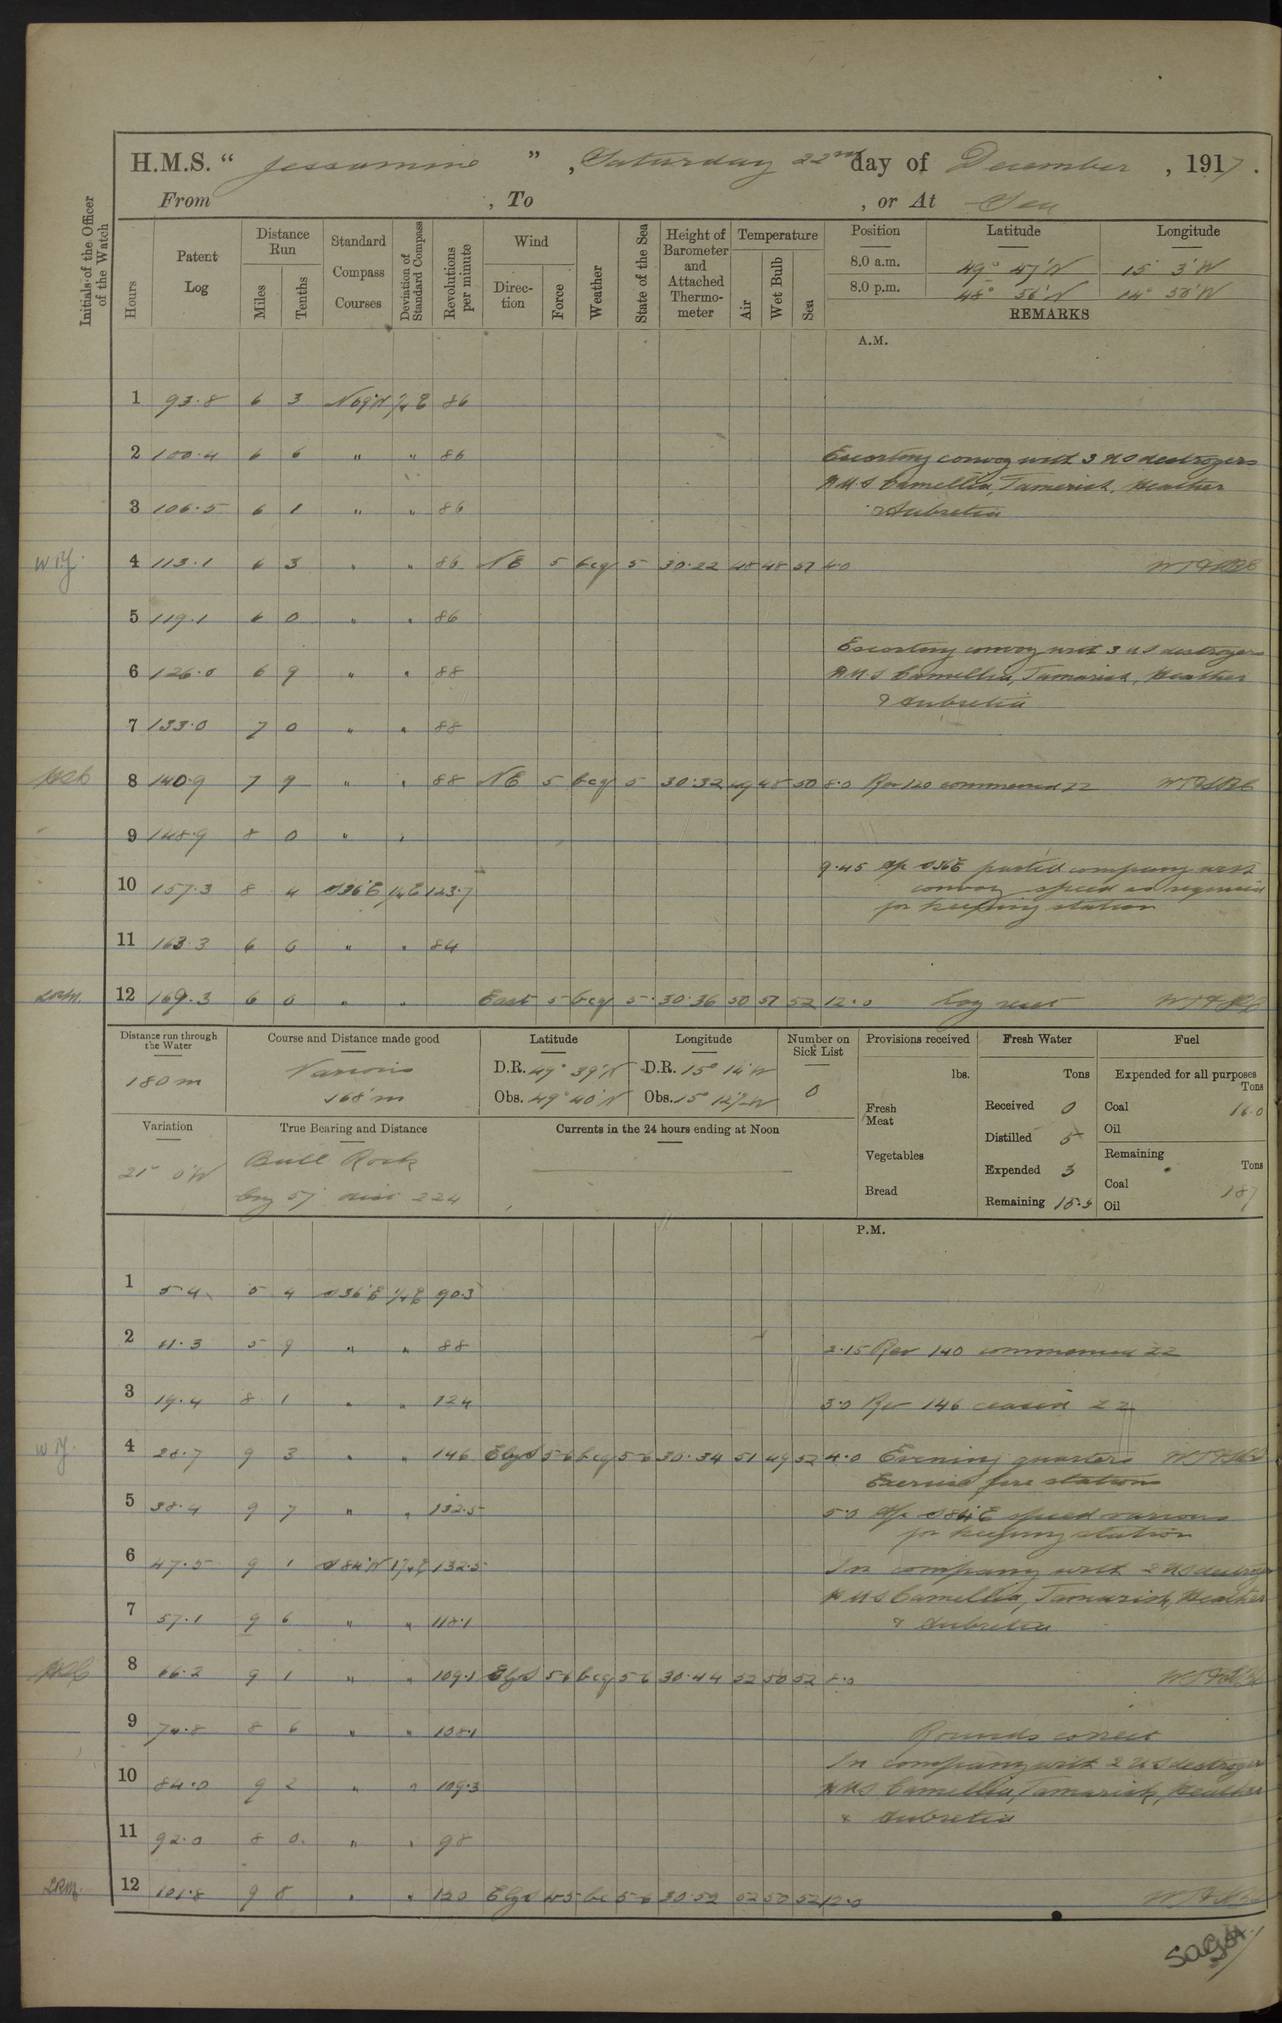 H.M.S. “ Jessamine ” , Saturday 22nd day of December , 1917 .
From , To , or At Sea
Initials of the Officer of the Watch
Hours
Patent Log
Distance Run
Miles
Tenths
Standard Compass Courses
Deviation of Standard Compass
Revolutions per minute
Wind
Direction
Force
Weather
State of the Sea
Height of Barometer and Attached Thermometer
Temperature
Air
Wet Bulb
Sea
Position Latitude Longitude
8.0 a.m. 49° 47' N 15° 3' W
8.0 p.m. 48° 56' N 14° 58' W
REMARKS
A.M.
1 93.8 6 3 N69°W ¼E 86
2 100.4 6 6 " " 86
Escorting convoy with 3 US destroyers
HMS Camellia, Tamarisk, Heather
3 106.5 6 1 " " 86
& Aubretia
4 113.1 6 3 " " 86 NE 5 bcq 5 30.22 48 48 51 4.0
5 119.1 6 0 " " 86
Escorting convoy with 3 US destroyers
6 126.0 6 9 " " 88 HMS Camellia, Tamarisk, Heather
& Aubretia
7 133.0 7 0 " " 88
8 140.9 7 9 " " 88 NE 5 bcq 5 30.32 49 48 50 8.0 Rev 120 commenced ZZ
9 148.9 8 0 " "
9.45 A/c S36°E parted company with
10 157.3 8 4 S36°E ¼E 123.7 convoy speed as requisite
for keeping station
11 163.3 6 0 " " 84
LRM. 12 169.3 6 0 " " East 5 bcq 5 30.36 50 51 52 12.0 Log reset
Distance run through the Water
180 m
Course and Distance made good
Various
168 m
Latitude
D.R. 49° 39' N
Obs. 49° 40' N
Longitude
D.R. 15° 14' W
Obs. 15° 12½' W
Number on Sick List
0
Provisions received
lbs.
Fresh Meat
Vegetables
Bread
Fresh Water
Tons
Received 0
Distilled 5
Expended 3
Remaining 15.5
Fuel
Expended for all purposes
Tons
Coal 16.0
Oil
Remaining
Tons
Coal 187
Oil
Variation
21° 0' W
True Bearing and Distance
Bull Rock
brg 57° dist 224
Currents in the 24 hours ending at Noon
P.M.
1 5.4 5 4 S36°E ¼E 90.3
2 11.3 5 9 " " 88 2.15 Rev 140 commenced ZZ
3 19.4 8 1 " " 124 3.0 Rev 146 ceased ZZ
4 28.7 9 3 " " 146 EbyS 5-6 bcq 5-6 30.34 51 49 52 4.0 Evening quarters
Exercise fire stations
5 38.4 9 7 " " 132.5 5.0 A/c S84°E speed various
for keeping station
6 47.5 9 1 S84°W 132.5 In company with 2 US destroyers
HMS Camellia, Tamarisk, Heather
7 57.1 9 6 " " 118.1
& Aubretia
8 66.2 9 1 " " 109.1 EbyS 5-6 bcq 5-6 30.44 52 50 52 8.0
9 74.8 8 6 " " 108.1 Rounds correct
In company with 2 US destroyers
10 84.0 9 2 " " 109.3 HMS Camellia, Tamarisk, Heather
& Aubretia
11 92.0 8 0 " " 98
LRM. 12 101.8 9 8 " " 120 EbyS 4-5 bc 5-6 30.52 52 50 52 12.0